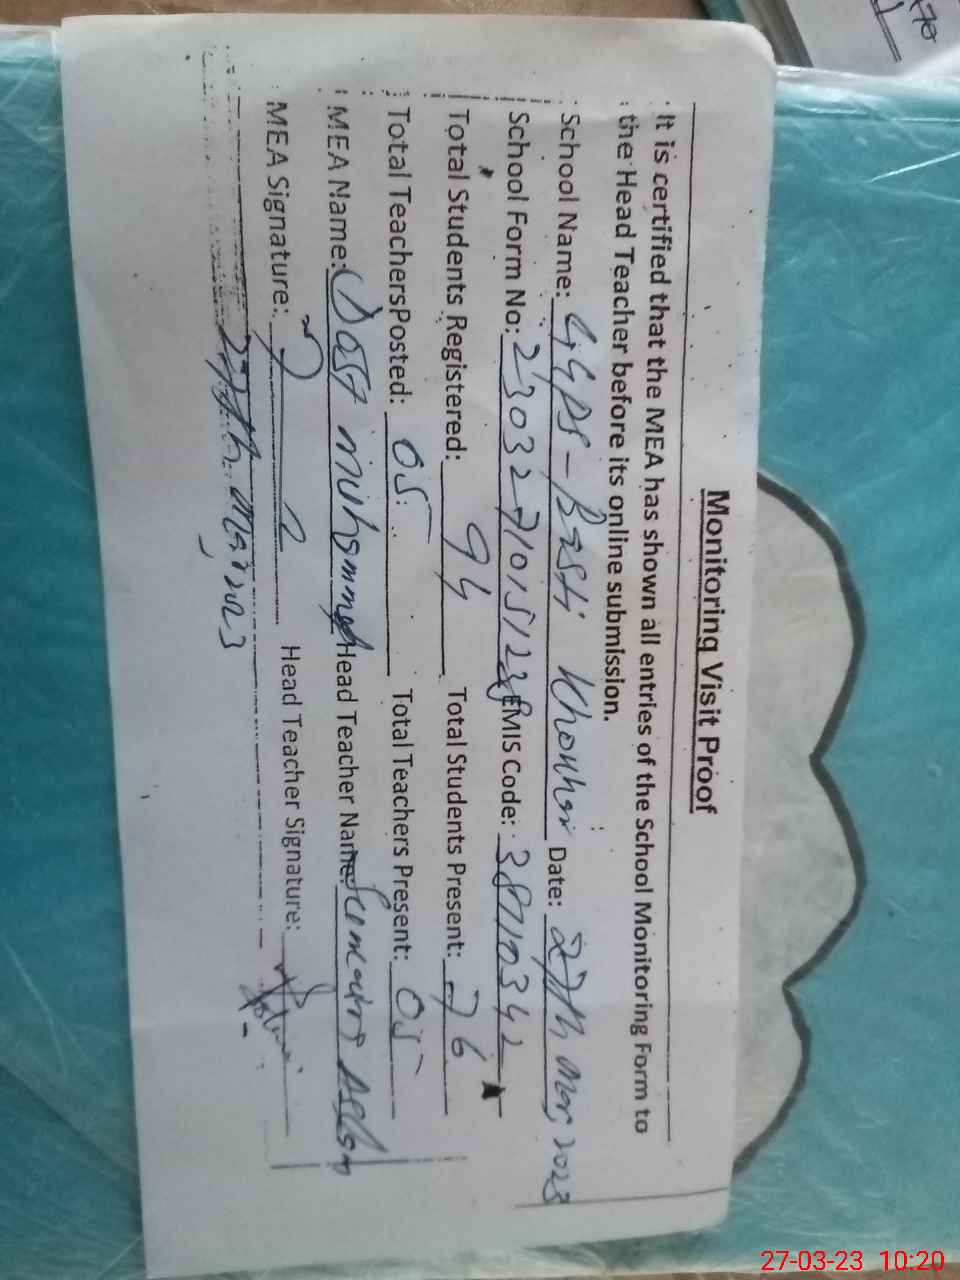 Monitoring Visit Proof
It is certified that the MEA has shown all entries of the School Monitoring Form to
the Head Teacher before its online submission.
School Name: GGPS - Basti Khokhar Date: 27th Mar, 2023
School Form No: EMIS Code:
Total Students Registered: 94 Total Students Present: 76
Total TeachersPosted: 05 Total Teachers Present: 05
MEA Name: Dost Muhammad Head Teacher Name: Aslam
MEA Signature: Head Teacher Signature:
27th Mar, 2023
27-03-23 10:20